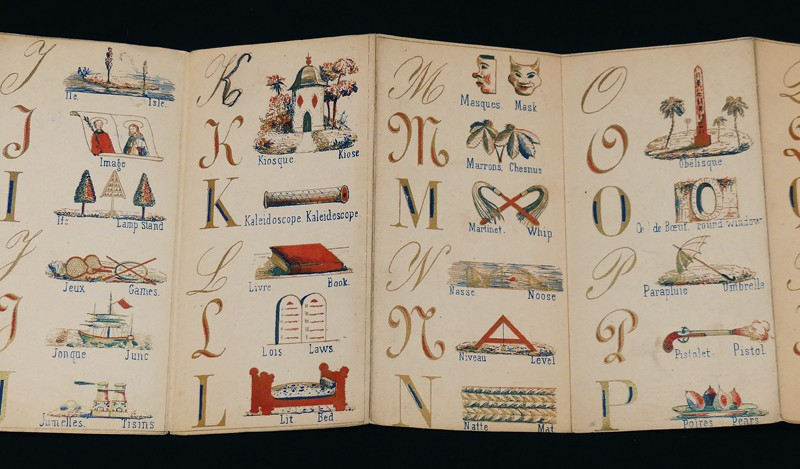 I
Ile. Isle.
I
Image
I
Ifs Lamp Stand
J
Jeux Games.
J
Jonque Junc
J
Jumelles. Tisins
K
Kiosque. Kiose
K
K
Kaleidoscope. Kaleidescope
L
Livre Book.
L
Lois Laws.
L
Lit Bed
M
Masques. Mask
M
Marrons. Chesnus
M
Martinet. Whip.
N
Nasse. Noose
N
Niveau Level
N
Natte Mat
O
Obelisque
O
O
de Bœuf. round. Window
P
Parapluie Umbrella
P
Pistolet. Pistol
P
Poires Pears